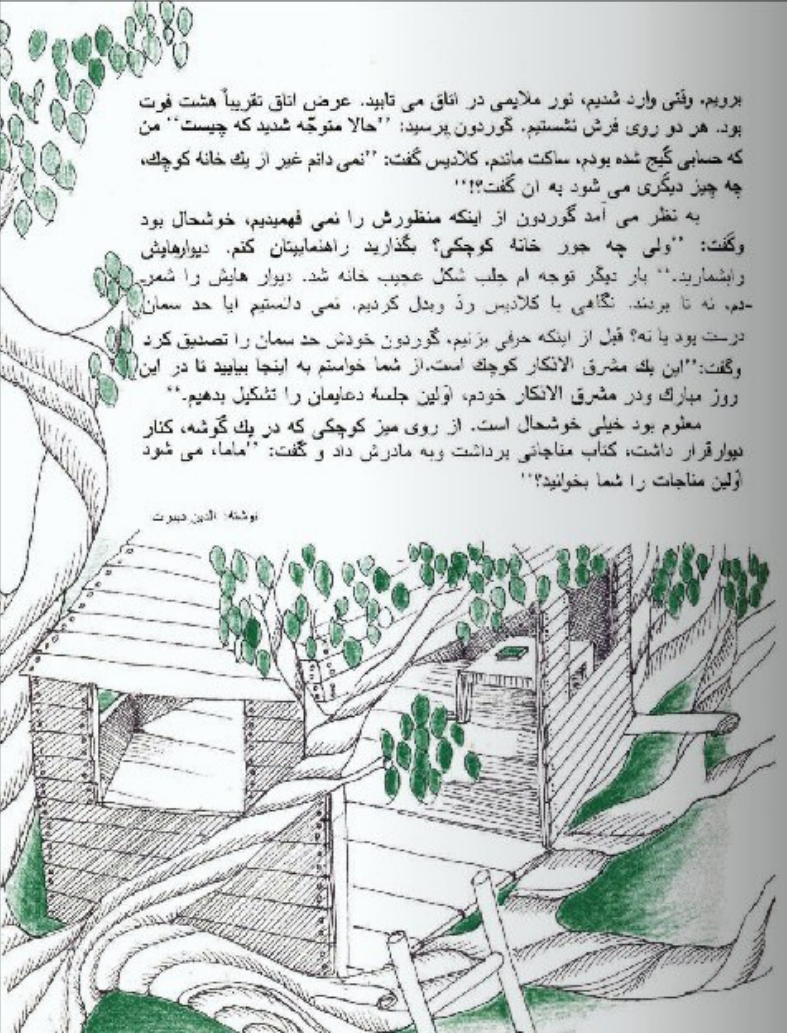 برویم. وقتی وارد شدیم، نور ملایمی در اتاق می تابید. عرض اتاق تقریباً هشت فوت
بود. هر دو روی فرش نشستیم. گوردون پرسید: "حالا متوجّه شدید که چیست" من
که حسابی گیج شده بودم، ساکت ماندم. کلادیس گفت: "نمی دانم غیر از یك خانه کوچك،
چه چیز دیگری می شود به ان گفت؟!"
به نظر می آمد گوردون از اینکه منظورش را نمی فهمیدیم، خوشحال بود
وگفت: "ولی چه جور خانهٔ کوچکی؟ بگذارید راهنماییتان کنم. دیوارهایش
رابشمارید." بار دیگر توجه ام جلب شکل عجیب خانه شد. دیوار هایش را شمر
-دم، نه تا بودند. نگاهی با کلادیس ردّ وبدل کردیم. نمی دانستیم ایا حد سمان
درست بود یا نه؟ قبل از اینکه حرفی بزنیم، گوردون خودش حد سمان را تصدیق کرد
وگفت:"این یك مشرق الاذکار کوچك است.از شما خواستم به اینجا بیایید تا در این
روز مبارك ودر مشرق الاذکار خودم، اوّلین جلسهٔ دعایمان را تشکیل بدهیم."
معلوم بود خیلی خوشحال است. از روی میز کوچکی که در یك گوشه، کنار
دیوارقرار داشت، کتاب مناجاتی برداشت وبه مادرش داد و گفت: "ماما، می شود
اوّلین مناجات را شما بخوانید؟"
نوشته: الدین